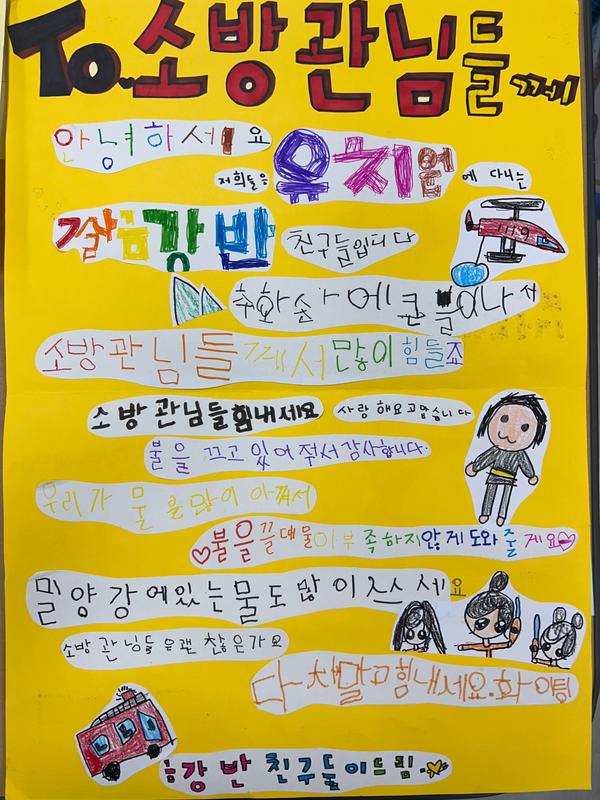 To..소방관님들께
안녕하세요
저희들은 유치원에 다니는
강반 친구들입니다
119
추화산에 큰불이나서
소방관님들께서많이 힘들죠
소방관님들힘내세요 사랑해요고맙습니다
불을 끄고있어줘서감사합니다.
우리가 물을많이 아껴서
♡불을끌때물이부족하지않게도와줄게요♡
밀양강에있는물도많이쓰세요
소방관님들은괜찮은가요
말고힘내세요.화이팅
강반 친구들이드림.